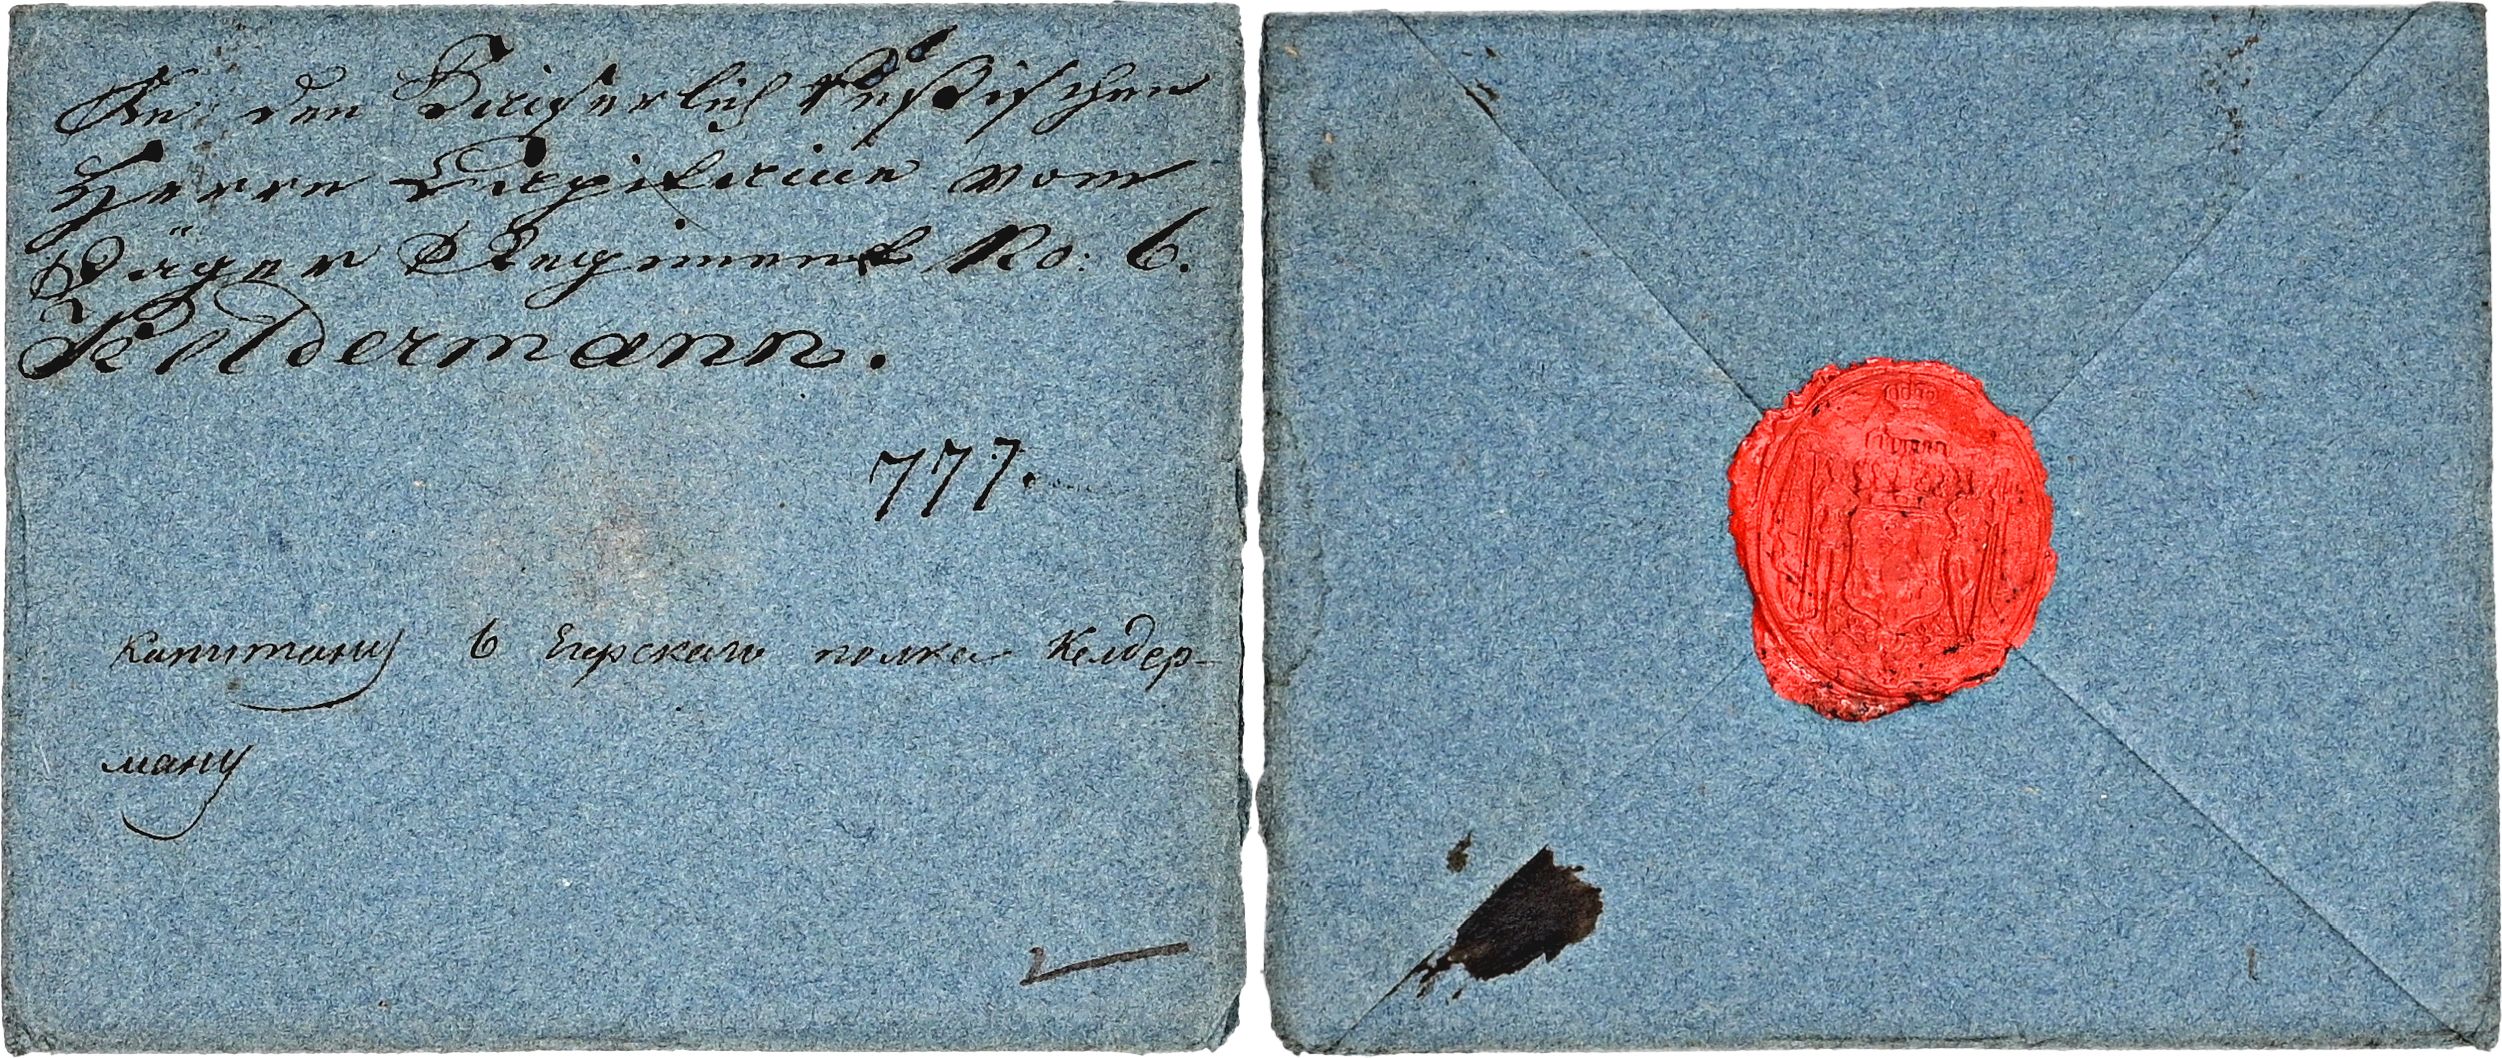 An den Kaiserlich Rußischen
Herrn Capitaine vom
Jäger Regiment No: 6.
Keldermann.
777.
Капитану 6 Егерскаго полка Келдер-
ману